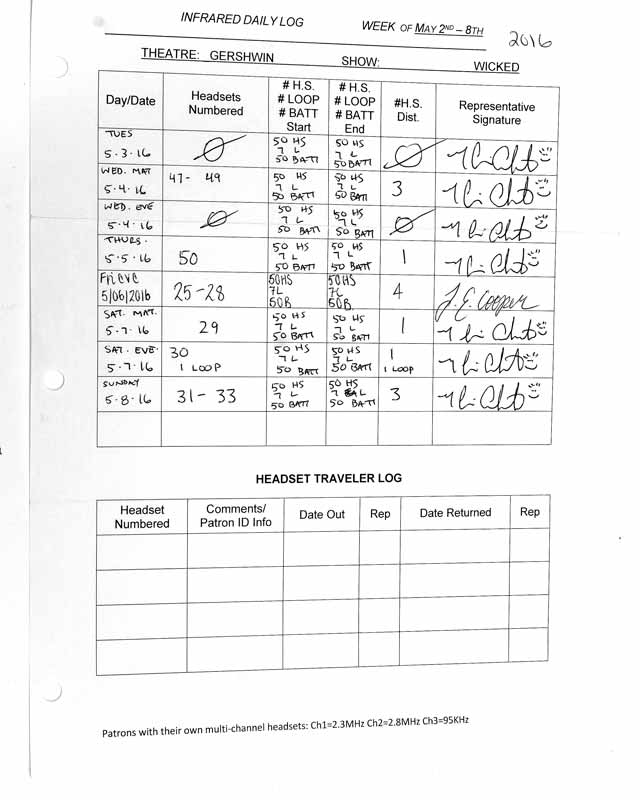 INFRARED DAILY LOG WEEK OF MAY 2ND – 8TH 2016
THEATRE: GERSHWIN SHOW: WICKED
Day/Date
Headsets
Numbered
# H.S.
# LOOP
# BATT
Start
# H.S.
# LOOP
# BATT
End
#H.S.
Dist.
Representative
Signature
TUES
5·3·16
Ø
50 HS
7 L
50 BATT
50 HS
7 L
50 BATT
Ø
WED. MAT
5·4·16
47- 49
50 HS
7 L
50 BATT
50 HS
7 L
50 BATT
3
WED. EVE
5·4·16
Ø
50 HS
7 L
50 BATT
50 HS
7 L
50 BATT
Ø
THURS.
5·5·16
50
50 HS
7 L
50 BATT
50 HS
7 L
50 BATT
1
Fri eve
5/06/2016
25-28
50HS
7L
50B
50HS
7L
50B
4
J.E. Cooper
SAT. MAT.
5·7·16
29
50 HS
7 L
50 BATT
50 HS
7 L
50 BATT
1
SAT. EVE.
5·7·16
30
1 LOOP
50 HS
7 L
50 BATT
50 HS
7 L
50 BATT
1
1 LOOP
SUNDAY
5·8·16
31- 33
50 HS
7 L
50 BATT
50 HS
7 L
50 BATT
3
HEADSET TRAVELER LOG
Headset
Numbered
Comments/
Patron ID Info
Date Out
Rep
Date Returned
Rep
Patrons with their own multi-channel headsets: Ch1=2.3MHz Ch2=2.8MHz Ch3=95KHz